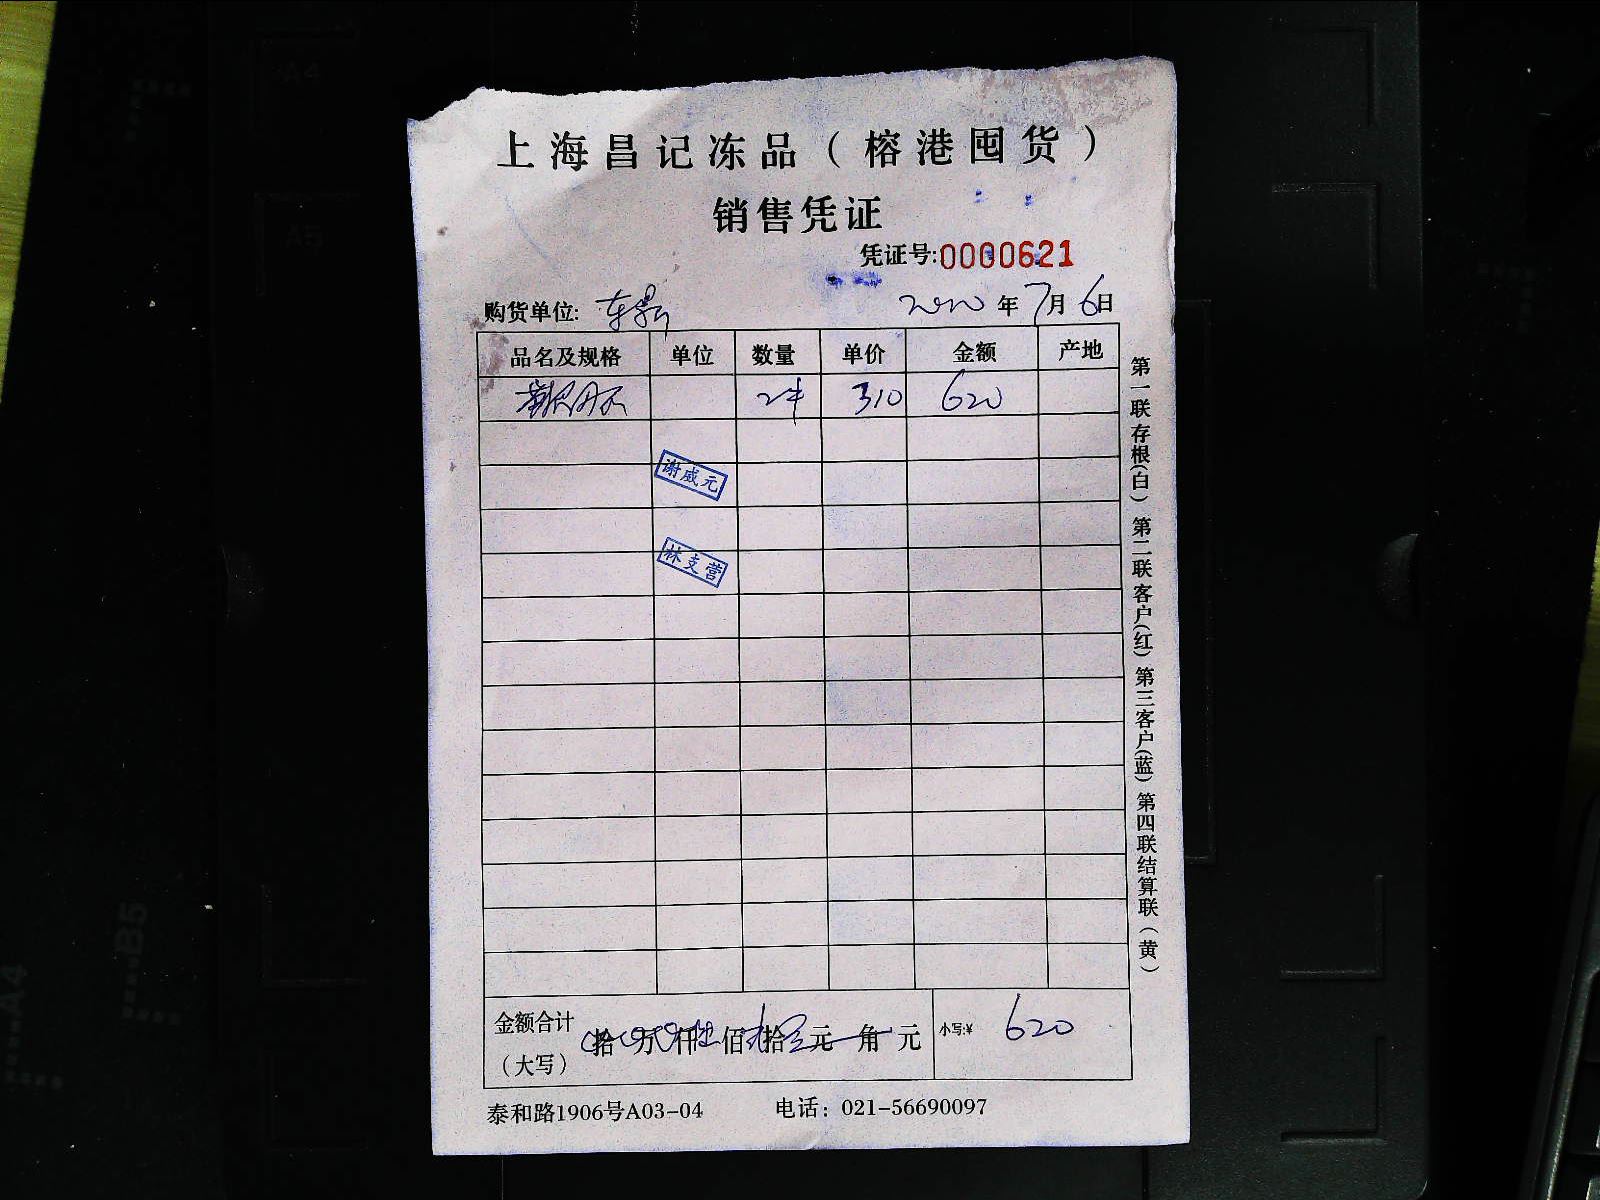 上海昌记冻品（榕港囤货）
销售凭证
凭证号:0000621
购货单位: 2020年7月6日
品名及规格 单位 数量 单价 金额 产地
2件 310 620
谢威元
林支营
金额合计（大写） 拾 万 仟 佰 拾 元 角 元 小写:¥ 620
泰和路1906号A03-04 电话：021-56690097
第一联存根(白) 第二联客户(红) 第三客户(蓝) 第四联结算联(黄)
A4
A5
B5
A4